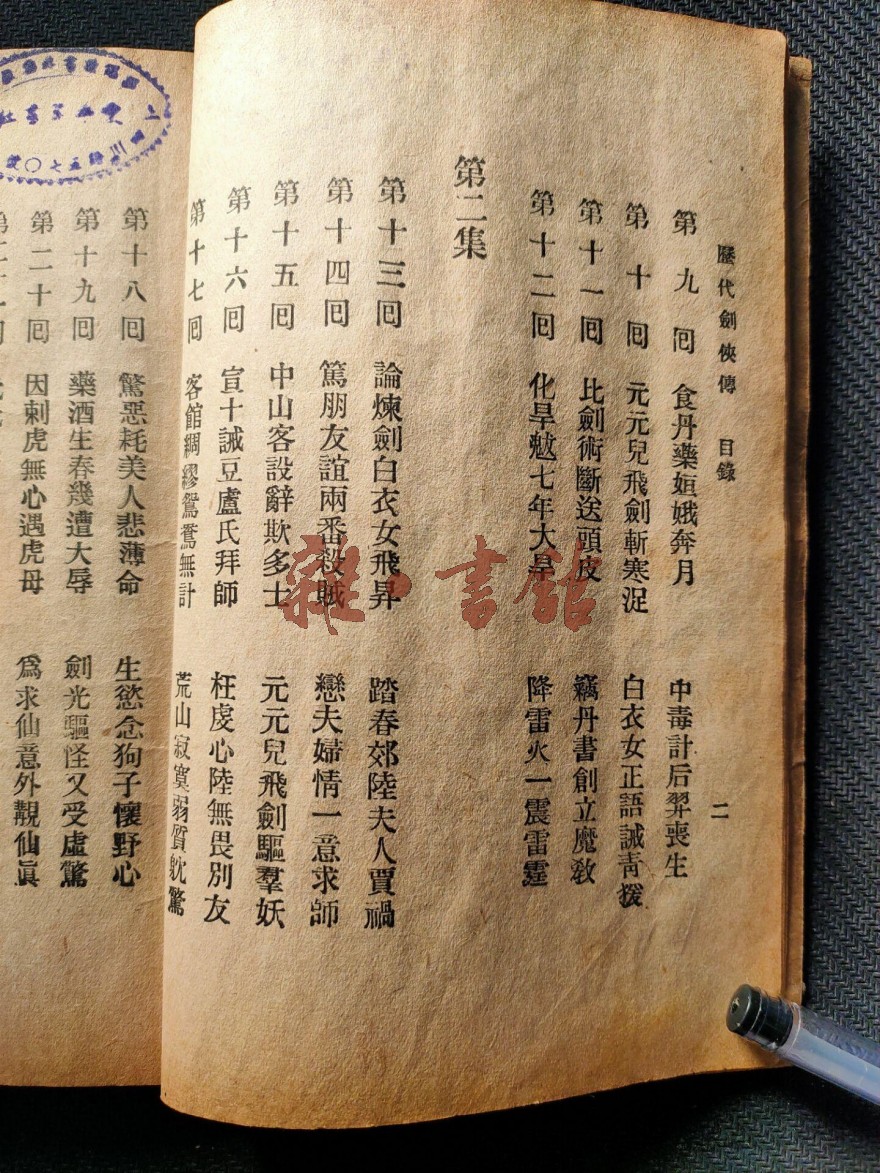 歷代劍俠傳 目錄 二
第九囘 食丹藥姮娥奔月 中毒計后羿喪生
第十囘 元元兒飛劍斬寒浞 白衣女正語誡青援
第十一囘 比劍術斷送頭皮 竊丹書創立魔教
第十二囘 化旱魃七年大旱 降雷火一震雷霆
第二集
第十三囘 論煉劍白衣女飛昇 踏春郊陸夫人賈禍
第十四囘 篤朋友誼兩番殺賊 戀夫婦情一意求師
第十五囘 中山客設辭欺多士 元元兒飛劍驅羣妖
第十六囘 宣十誡豆盧氏拜師 枉虔心陸無畏別友
第十七囘 客館綢繆鴛鴦無計 荒山寂寞弱質躭驚
第十八囘 驚惡耗美人悲薄命 生慾念狗子懷野心
第十九囘 藥酒生春幾遭大辱 劍光驅怪又受虛驚
第二十囘 因刺虎無心遇虎母 爲求仙意外覩仙眞
雜·書館